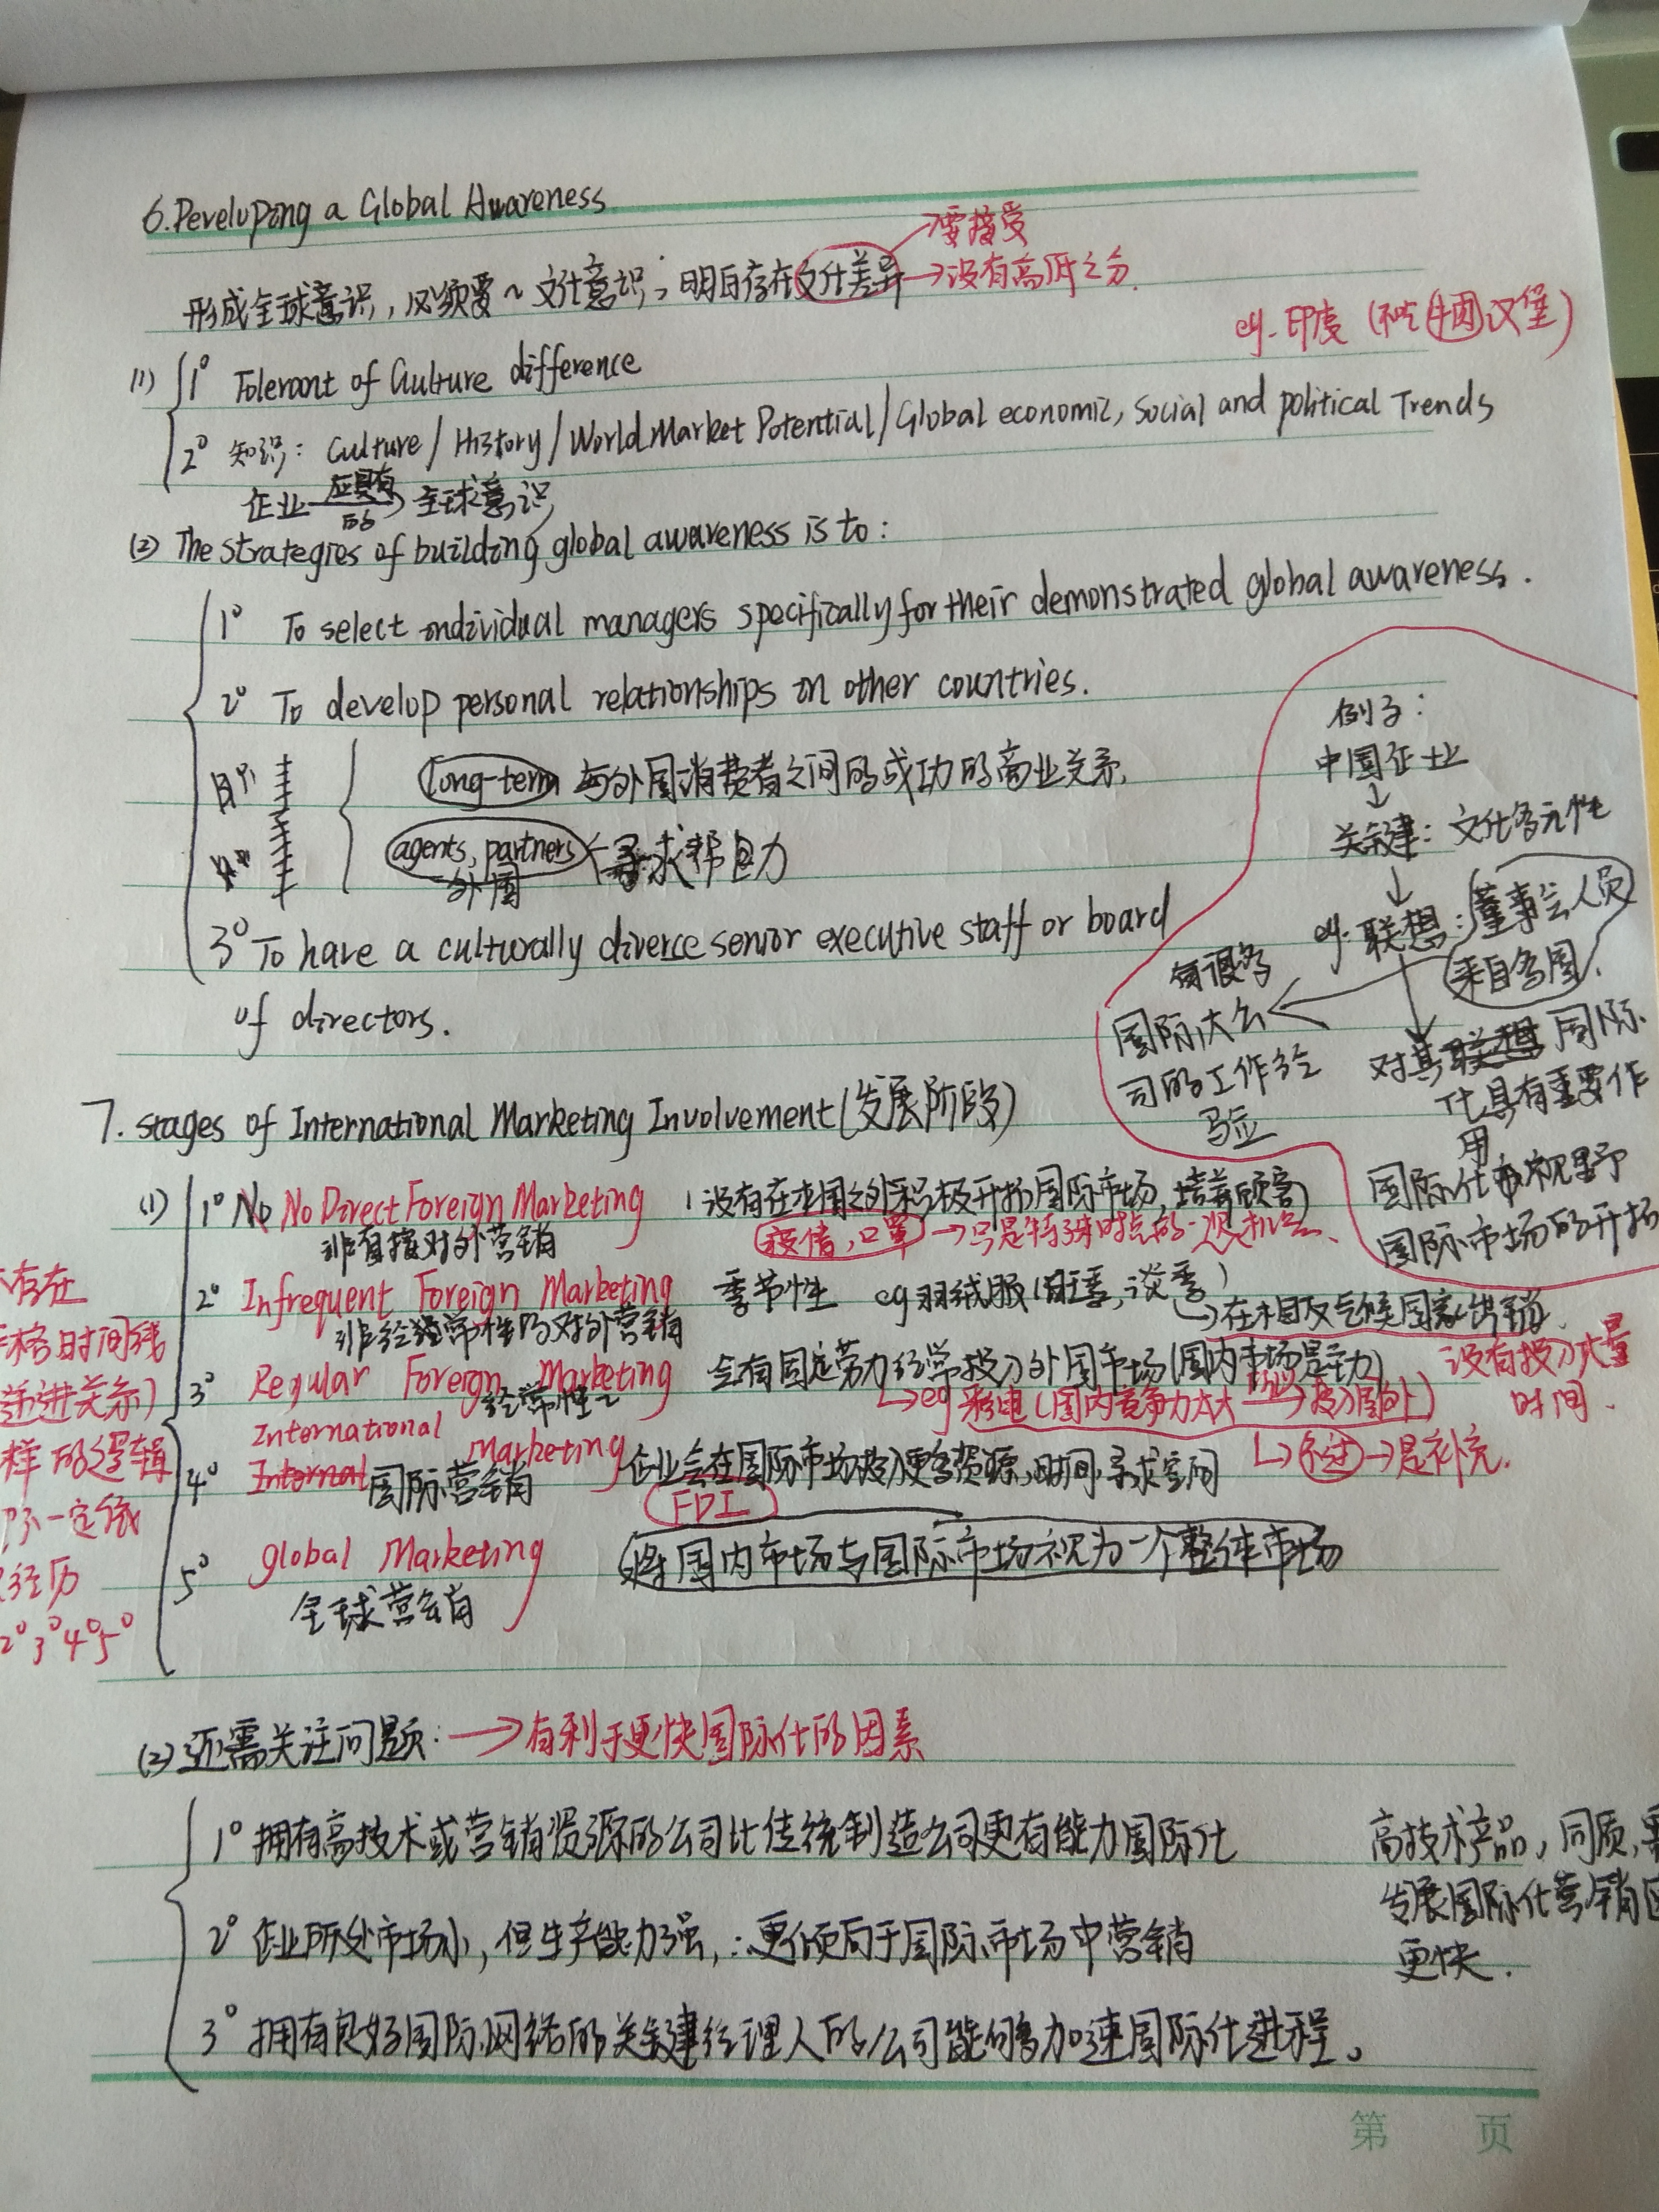 6.Developing a Global Awareness
→要接受
形成全球意识，必须要~文化意识；明白存在文化差异→没有高低之分.
eg.印度(不吃牛肉汉堡)
(1) 1° Tolerant of Culture difference
2° 知识: Culture / History / World Market Potential / Global economic, Social and political Trends
企业 应具有的 全球意识
(2) The strategies of building global awareness is to:
1° To select individual managers specifically for their demonstrated global awareness.
2° To develop personal relationships in other countries.
long-term 与外国消费者之间的成功的商业关系.
agents, partners 寻求帮助力
外国
3° To have a culturally diverce senior executive staff or board
of directors.
例子:
中国企业
↓
关键: 文化多元性
↓
eg.联想:董事会人员
来自多国.
有很多
国际大公
司的工作经
验
对其联想国际
化具有重要作
用
国际化视野
国际市场的开拓
7. Stages of International Marketing Involvement(发展阶段)
(1) 1° No No Direct Foreign Marketing (没有在本国之外积极开拓国际市场,培养顾客)
非直接对外营销 疫情,口罩→只是特殊时点的一次机会.
2° Infrequent Foreign Marketing 季节性 eg羽绒服(旺季,淡季)
非经常性的对外营销 →在相反气候国家出销.
3° Regular Foreign Marketing 会有固定劳力经常投入外国市场(国内市场是主力) 没有投入大量
经常性~ →eg 彩电(国内竞争力太大→投入国外) 时间.
4° International Marketing 企业会在国际市场投入更多资源,时间,寻求空间 →不过→是补充.
Internal 国际营销 FDI
5° global Marketing 将国内市场与国际市场视为一个整体市场
全球营销
存在
格时间线
递进关系)
样的逻辑
不一定依
经历
2°3°4°5°
(2)还需关注问题: →有利于更快国际化的因素
1° 拥有高技术或营销资源的公司比传统制造公司更有能力国际化
2° 企业所处市场小,但生产能力强,∴更倾向于国际市场中营销
3° 拥有良好国际网络的关键经理人的公司能够加速国际化进程。
高技术产品,同质,
发展国际化营销
更快.
第 页